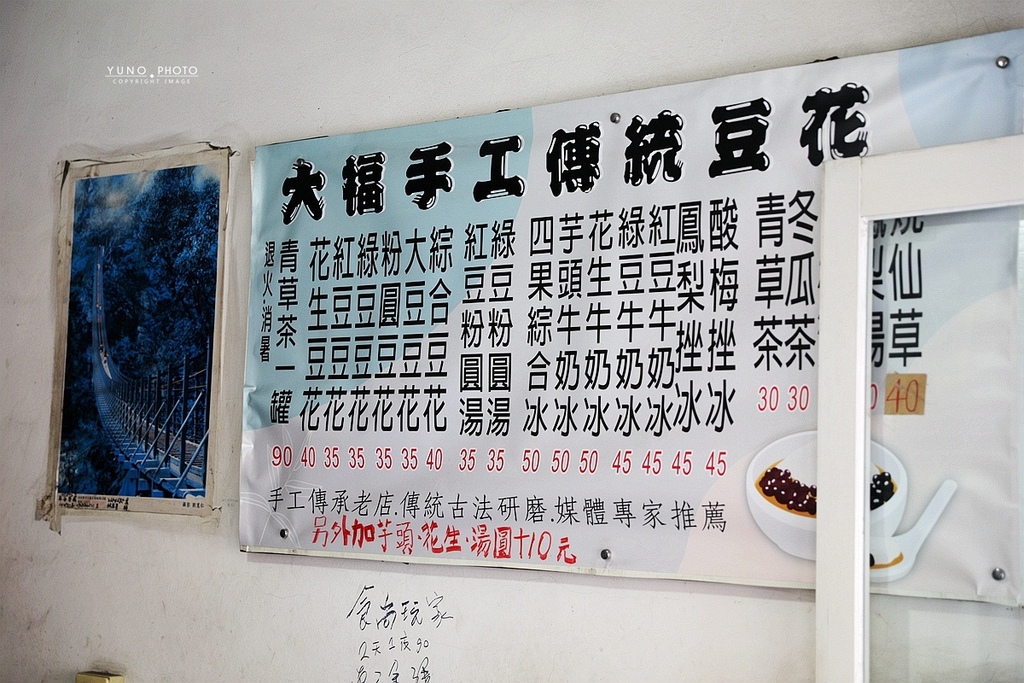 YUNO PHOTO
COPYRIGHT IMAGE
大福手工傳統豆花
退火.消暑
青草茶一罐 90
花生豆花 40
紅豆豆花 35
綠豆豆花 35
粉圓豆花 35
大豆豆花 35
綜合豆花 40
紅豆粉圓湯 35
綠豆粉圓湯 35
四果綜合冰 50
芋頭牛奶冰 50
花生牛奶冰 50
綠豆牛奶冰 45
紅豆牛奶冰 45
鳳梨挫冰 45
酸梅挫冰 45
青草茶 30
冬瓜茶 30
梨湯
燒仙草 40
手工傳承老店.傳統古法研磨.媒體專家推薦
另外加芋頭.花生.湯圓+10元
食尚玩家
2天1夜90